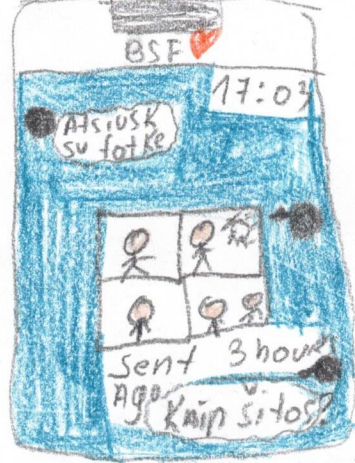 BSF
17:03
Atsiusk
su fotke
Sent 3 hours
Ago
Kaip šitos?